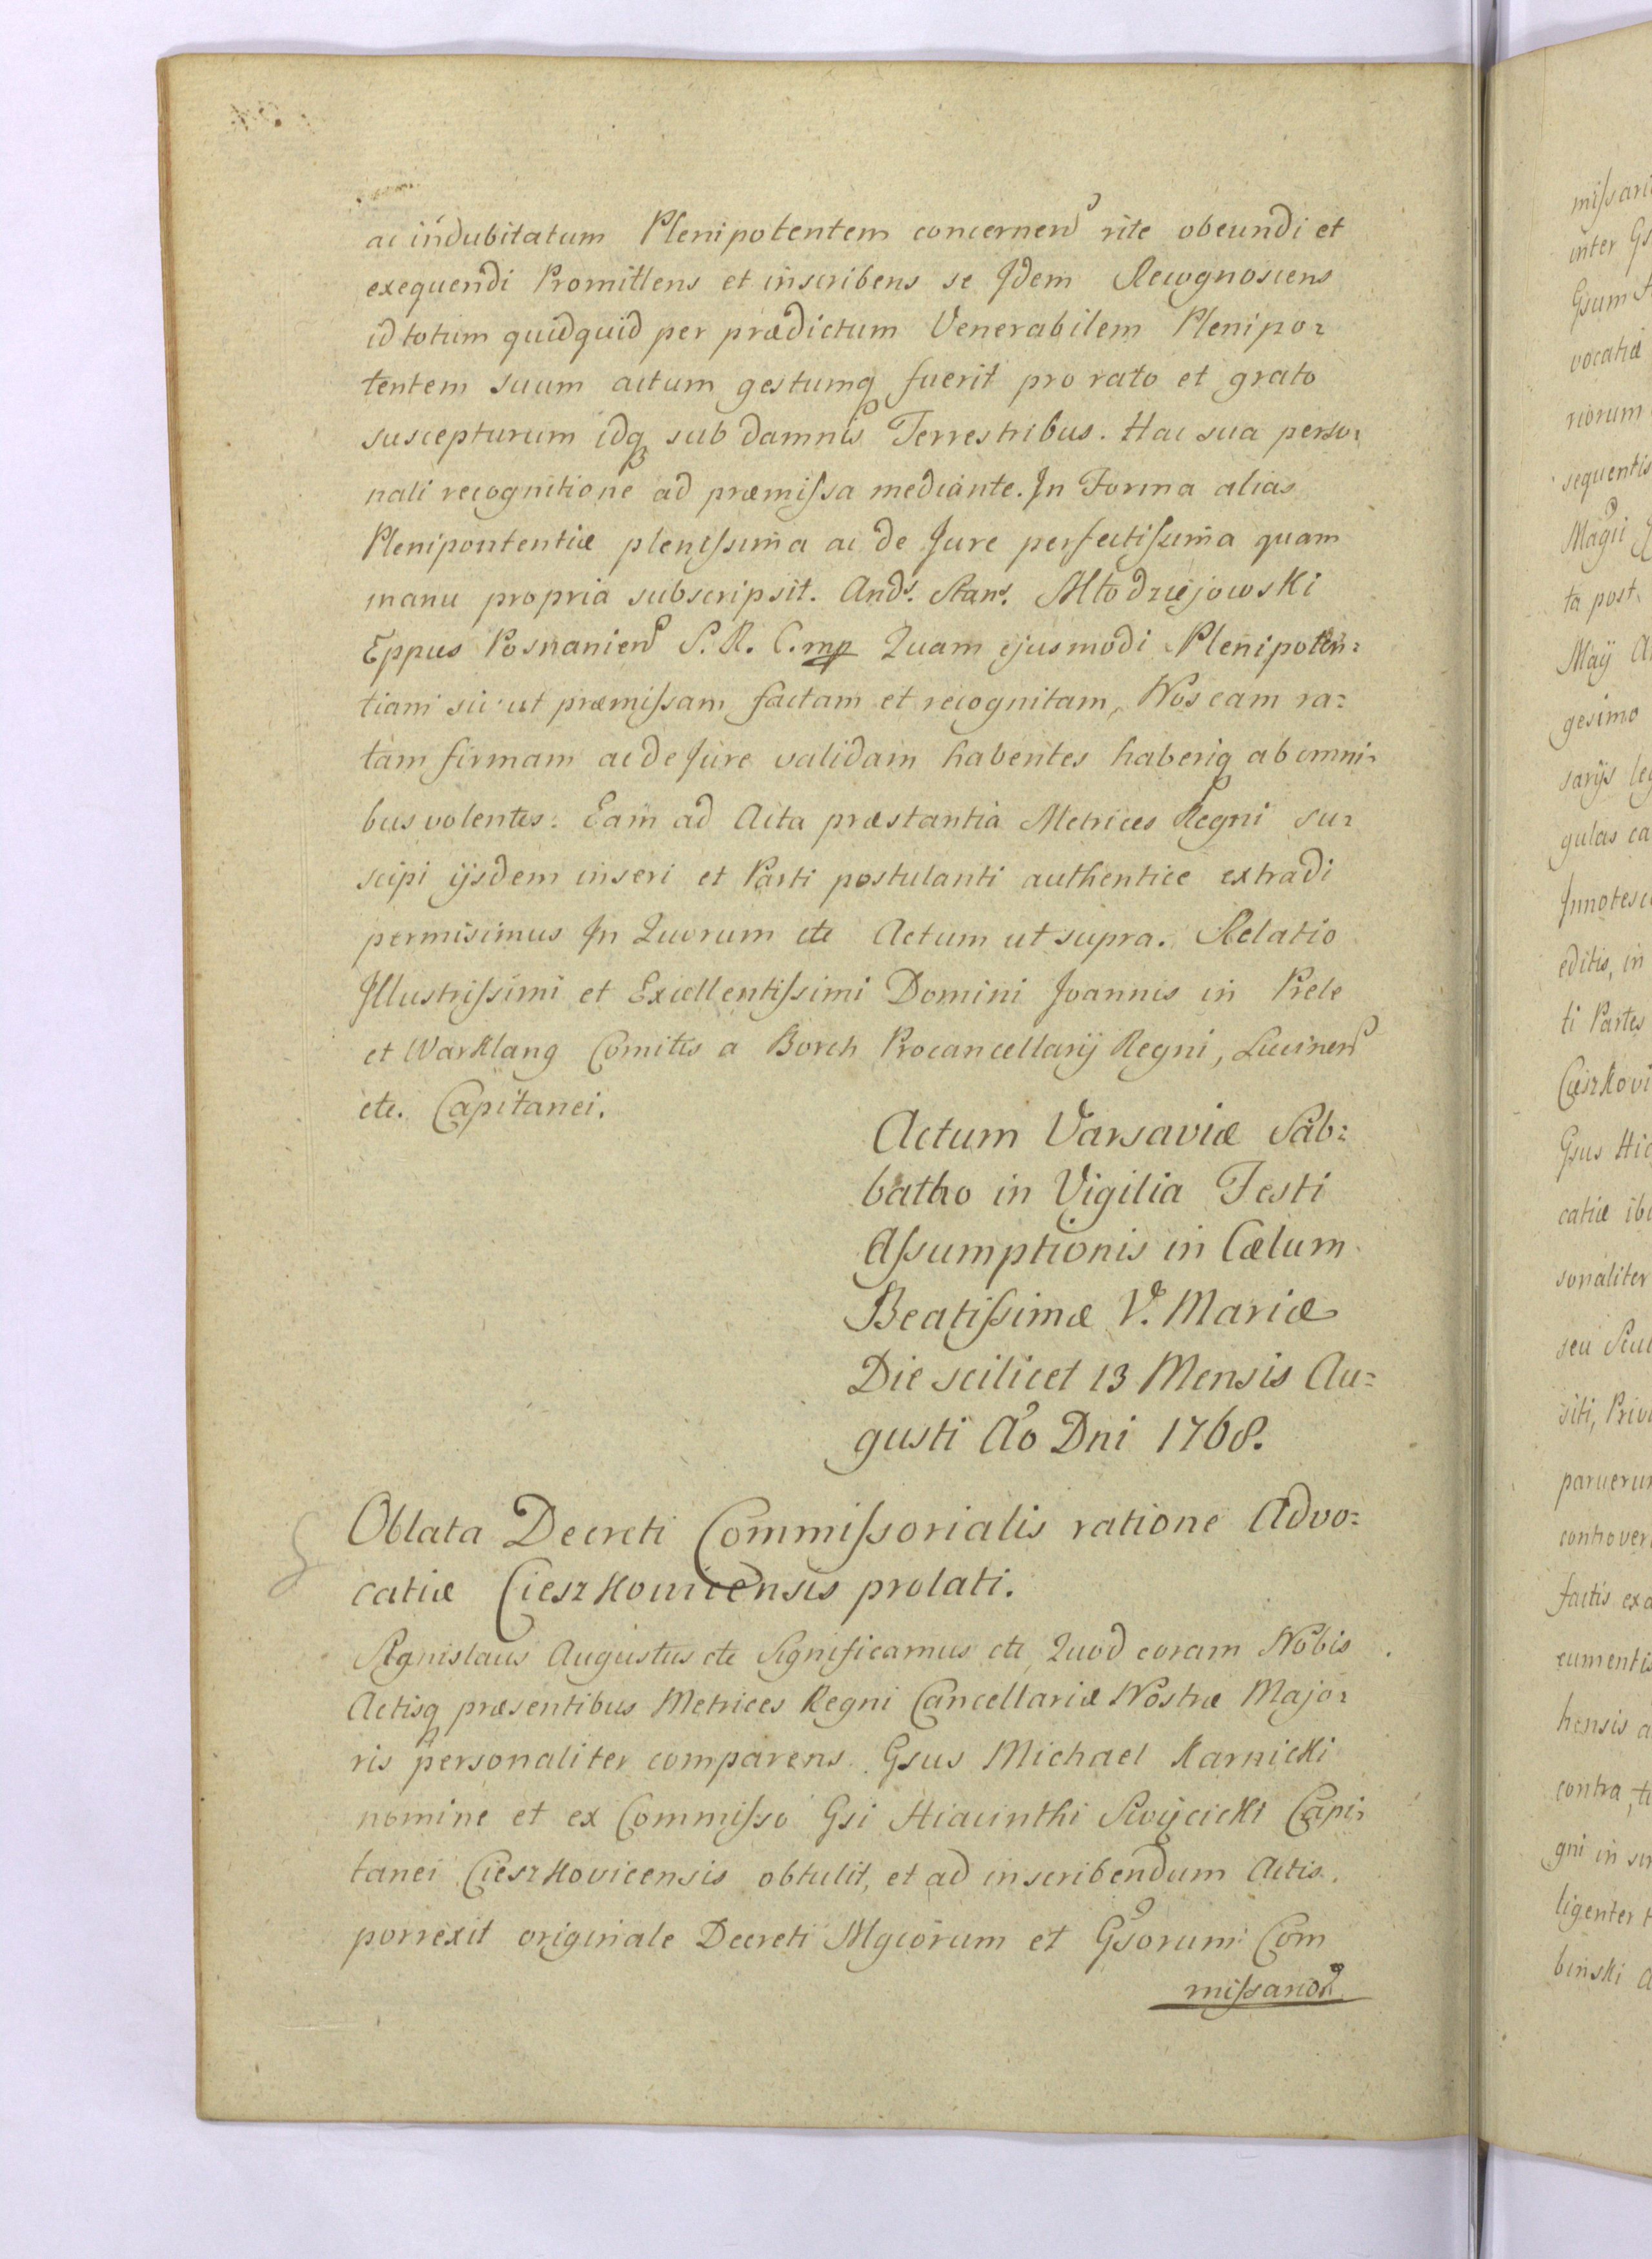 ac indubitatum Plenipotentem concernen rite obeundi et
exequendi Promittens et inscribens se Idem Recognoscens
id totum quidquid per prædictum Venerabilem Plenipo=
tentem suum actum gestumq fuerit pro rato et grato
suscepturum idq sub damnis Terrestribus. Hac sua perso=
nali recognitione ad præmissa mediante. In Forma alias
Plenipontentiæ plenissima ac de Jure perfectissima quam
manu propria subscripsit. Ands. Stans. Młodziejowski
Eppus Posnanien S. R. C. mp Quam ejusmodi Plenipoten=
tiam sicut præmissam factam et recognitam, Nos eam ra=
tam firmam ac de Jure validam habentes haberiq ab omni=
bus volentes. Eam ad Acta præstantia Metrices Regni su=
scipi ijsdem inseri et Parti postulanti authentice extradi
permisimus In Quorum etc Actum ut supra. Relatio
Illustrissimi et Excellentissimi Domini Joannis in Prele
et Warklang Comitis a Borch Procancellarij Regni, Lucinen
etc. Capitanei.
Actum Varsaviæ Sab=
batho in Vigilia Festi
Assumptionis in Cælum
Beatissimæ V. Mariæ
Die scilicet 13 Mensis Au=
gusti Ao Dni 1768.
Oblata Decreti Commissorialis ratione Advo=
catiæ Cieszkovicensis prolati.
Stanislaus Augustus etc Significamus etc Quod coram Nobis
Actisq præsentibus Metrices Regni Cancellariæ Nostræ Majo=
ris personaliter comparens Gsus Michael Karnicki
nomine et ex Commisso Gsi Hiacinthi Siwycicki Capi=
tanei Cieszkovicensis obtulit, et ad inscribendum Actis
porrexit originale Decreti Mgcorum et Gsorum Com
missarior
missari
inter Gs
Gsum
vocatiæ
riorum
sequentis
Magci
ta post
Maij
gesimo
sarijs leg
gulas ca
Innotesc
editis, in
ti Partes
Cieszkovi
Gsus Hia
catiæ ib
sonaliter
seu
siti, Priv
paruerun
controver
factis ex
cumentis
hensis a
contra, t
gni in
ligenter
binski